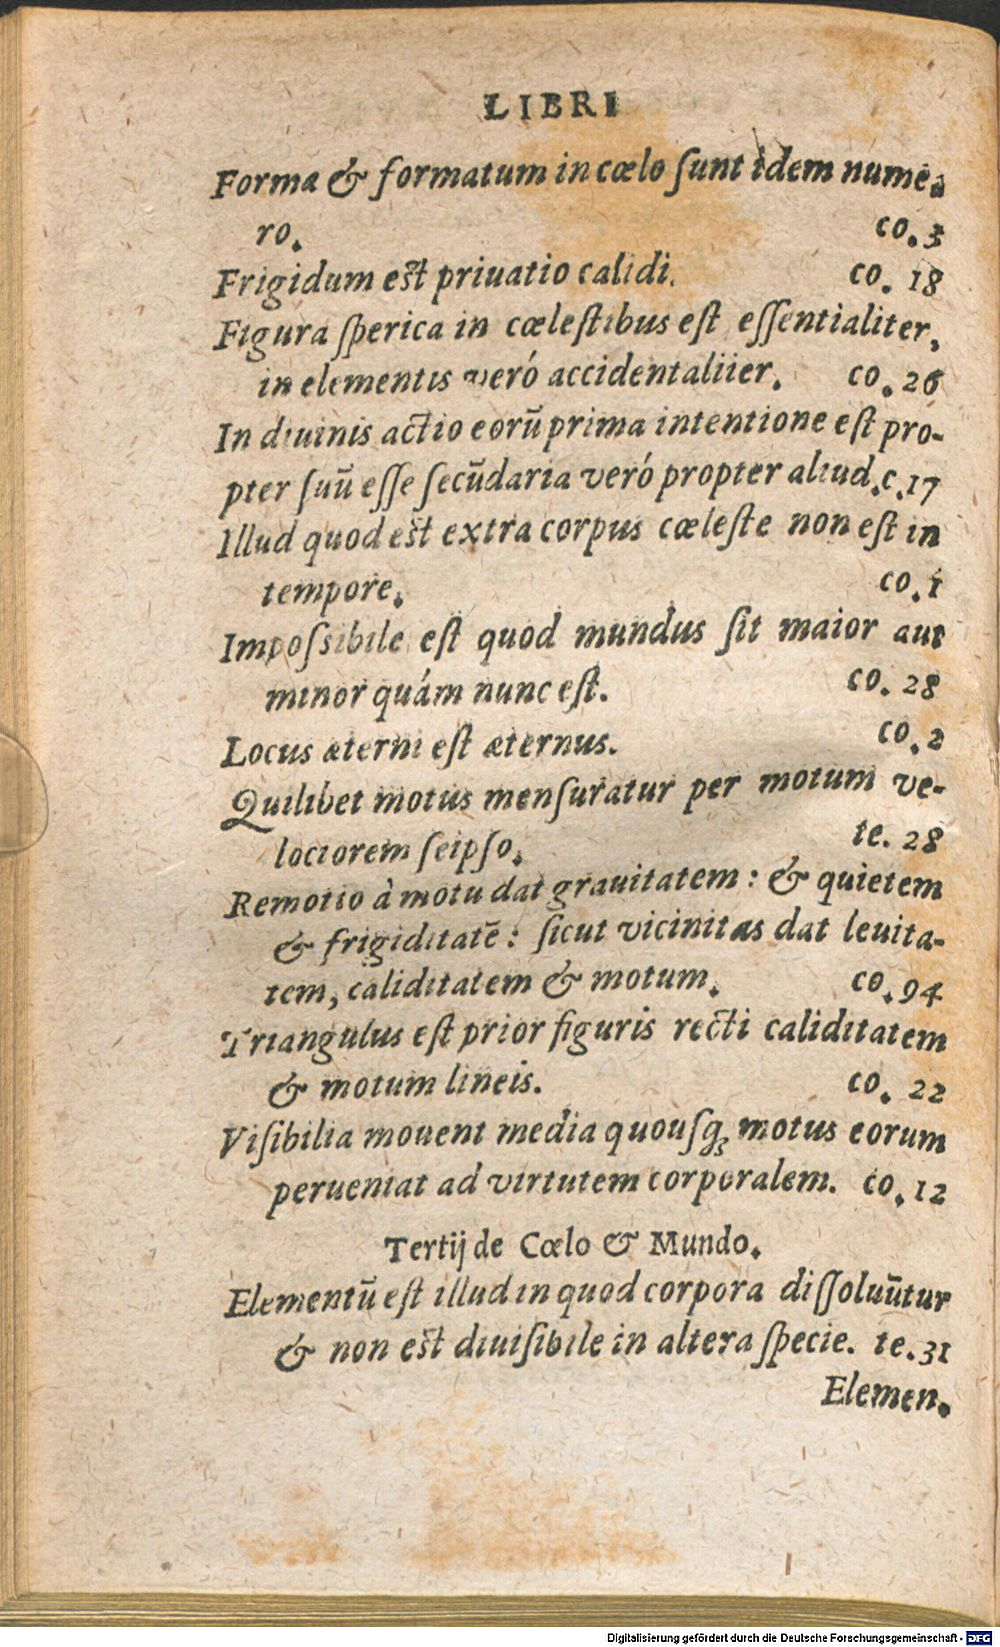 LIBRI
Forma & formatum in cœlo ſunt idem nume-
ro. co. 3
Frigidum eſt priuatio calidi. co. 18
Figura ſperica in cœleſtibus eſt eſſentialiter,
in elementis veró accidentaliier. co. 26
In diuinis actio eorū prima intentione eſt pro-
pter ſuū eſſe ſecūdaria veró propter aliud. c. 17
Illud quod eſt extra corpus cœleſte non eſt in
tempore. co. 1
Impoſsibile eſt quod mundus ſit maior aut
minor quám nunc eſt. co. 28
Locus æterni eſt æternus. co. 2
Quilibet motus menſuratur per motum ve-
lociorem ſeipſo. te. 28
Remotio à motu dat grauitatem : & quietem
& frigiditatē : ſicut vicinitas dat leuita-
tem, caliditatem & motum. co. 94
Triangulus eſt prior figuris recti caliditatem
& motum lineis. co. 22
Viſibilia mouent media quouſq; motus eorum
perueniat ad virtutem corporalem. co. 12
Tertij de Cœlo & Mundo.
Elementū eſt illud in quod corpora diſſoluūtur
& non eſt diuiſibile in altera ſpecie. te. 31
Elemen.
Digitalisierung gefördert durch die Deutsche Forschungsgemeinschaft - DFG